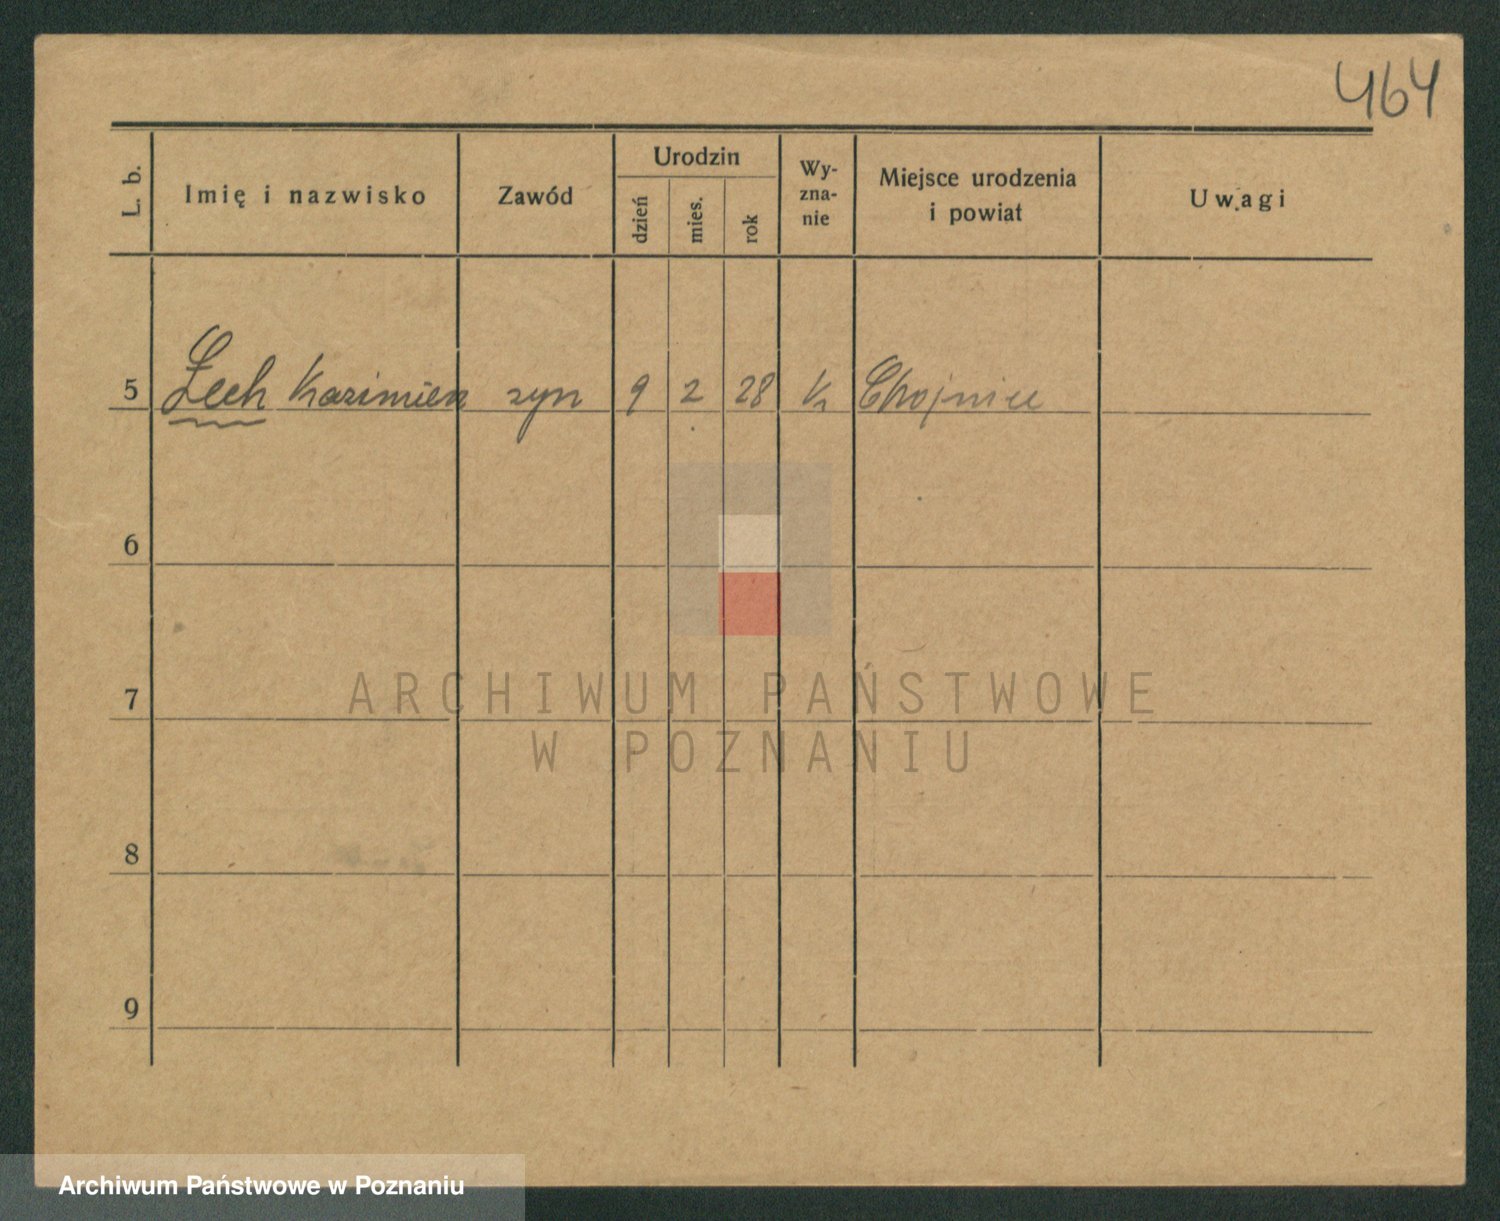 464
L. b.
Imię i nazwisko
Zawód
Urodzin
dzień
mies.
rok
Wy-
zna-
nie
Miejsce urodzenia
i powiat
Uwagi
5 Lech Kazimierz syn 9 2 28 k Chojnice
6
7
8
9
ARCHIWUM PAŃSTWOWE
W POZNANIU
Archiwum Państwowe w Poznaniu